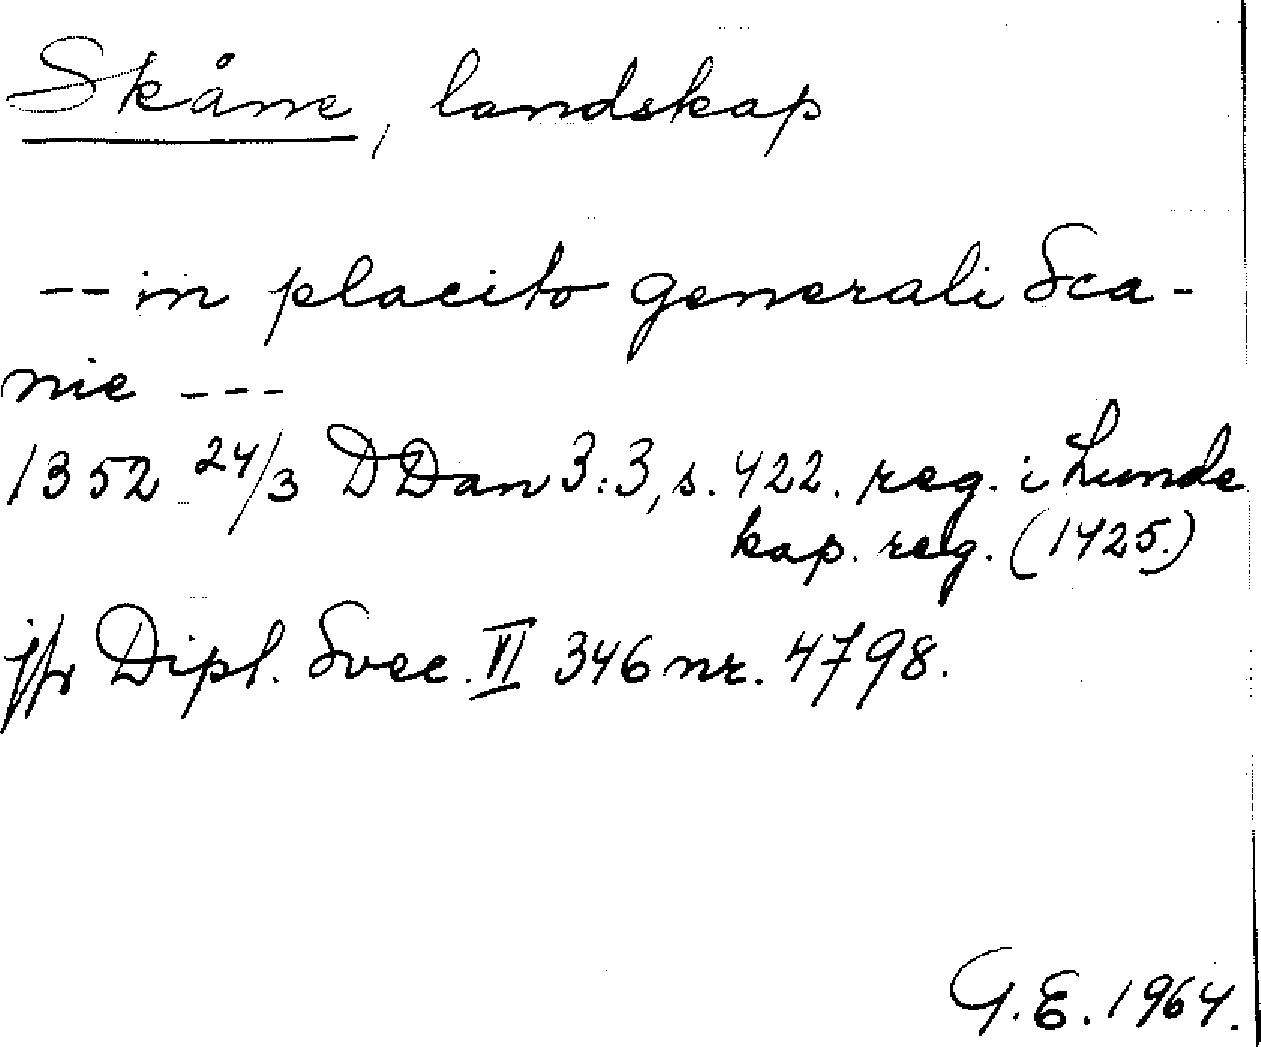 Skåne, landskap
-- in placito generali Sca-
nie ---
1352 24/3 DDan 3:3, s. 422. reg. i Lunde
kap. reg. (1425.)
jfr Dipl. Svec. VI 346 nr. 4798.
G.E. 1964.